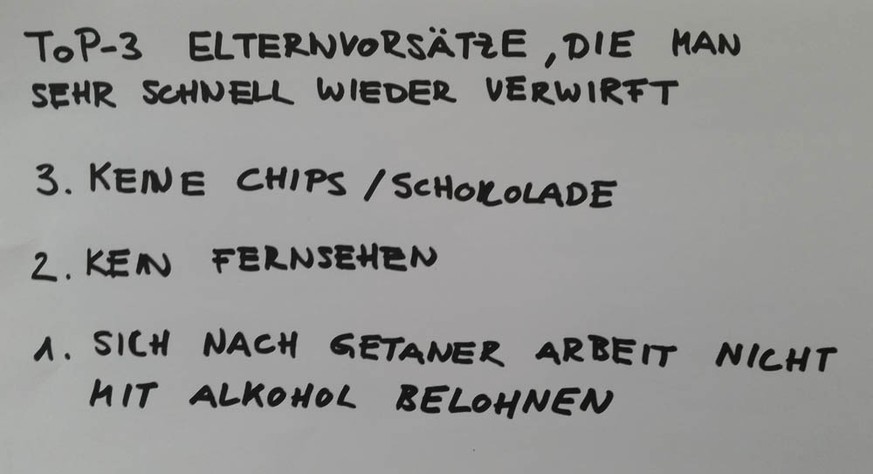 ToP-3 ELTERNVORSÄTZE, DIE MAN
SEHR SCHNELL WIEDER VERWIRFT
3. KEINE CHIPS / SCHOKOLADE
2. KEIN FERNSEHEN
1. SICH NACH GETANER ARBEIT NICHT
MIT ALKOHOL BELOHNEN